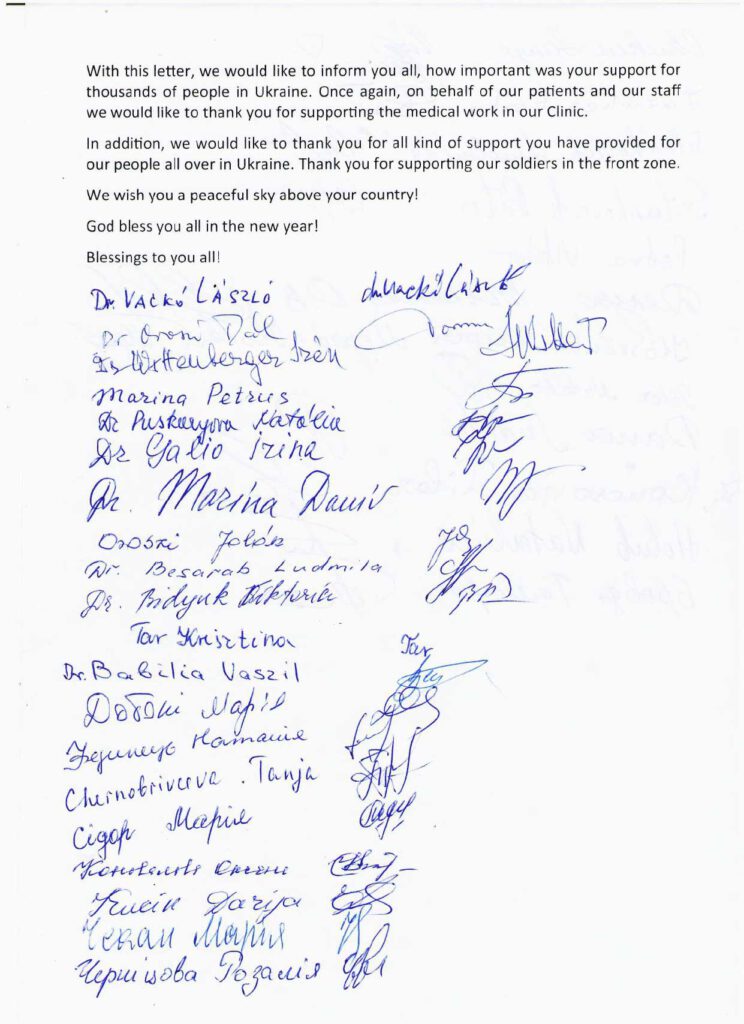 With this letter, we would like to inform you all, how important was your support for
thousands of people in Ukraine. Once again, on behalf of our patients and our staff
we would like to thank you for supporting the medical work in our Clinic.
In addition, we would like to thank you for all kind of support you have provided for
our people all over in Ukraine. Thank you for supporting our soldiers in the front zone.
We wish you a peaceful sky above your country!
God bless you all in the new year!
Blessings to you all!
Dr. VACKÓ LÁSZLÓ dr. Vackó László
Dr Orosi Pál
Dr Wittenberger Irén
Marina Petrus
Dr Puskaryova Natália
Dr Galio Irina
Dr. Marina Daniv
Oroszi Jolán
Dr. Besarab Ludmila
Dr. Bidyuk Viktoria
Tar Krisztina Tar
Dr. Babilia Vaszil
Добоні Марія
Наталія
Chernobrivceva. Tanja
Сідор Марія
Коновалова Оксана
Darija
Чекан Марія
Розалія